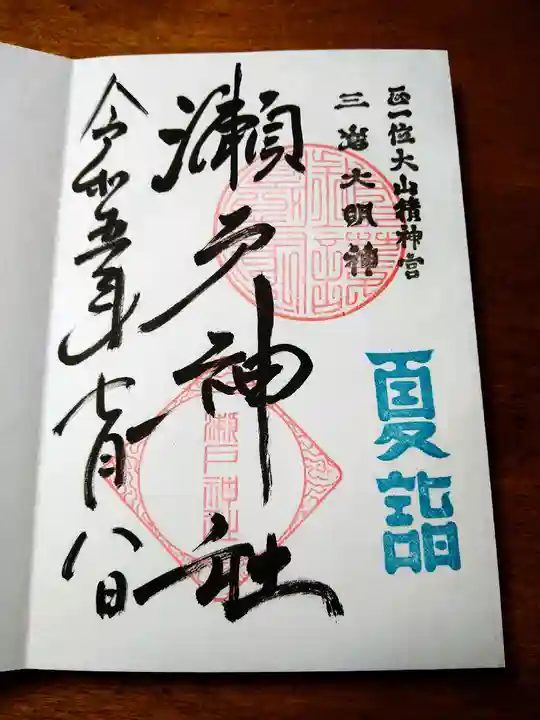 正一位大山積神宮
三嶋大明神
夏詣
瀬戸神社
令和五年七月八日
瀬戸神社